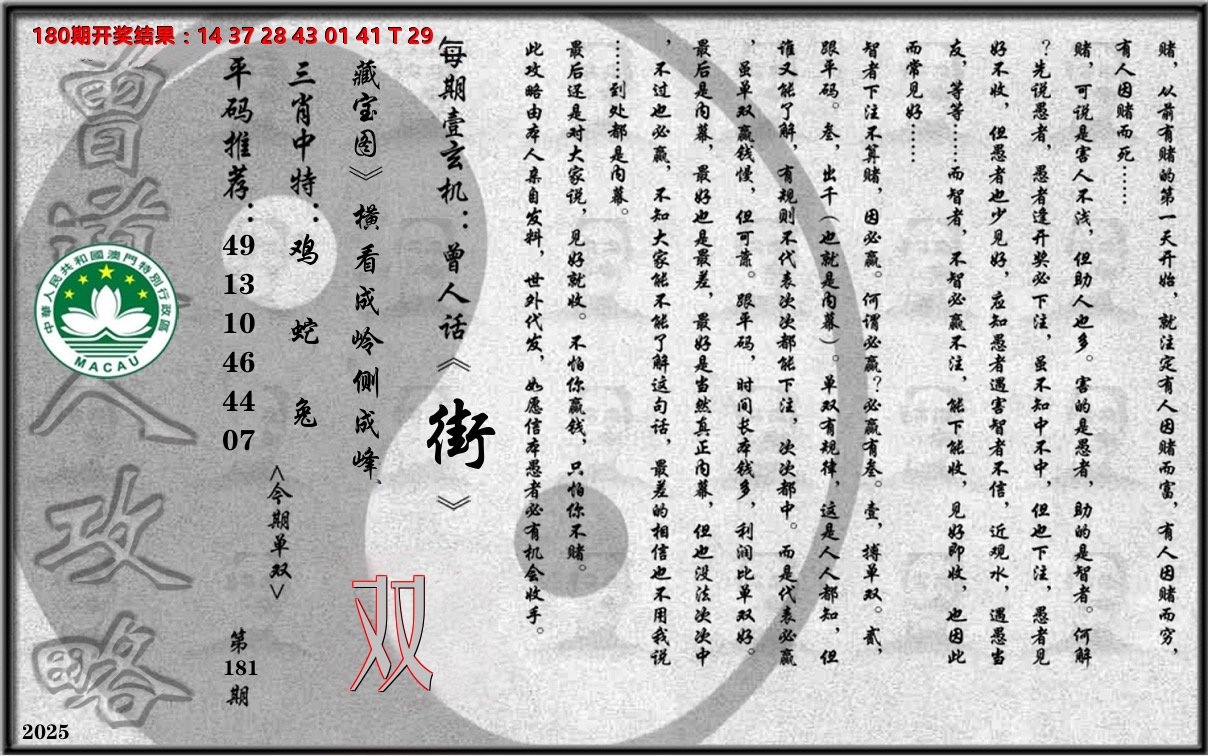 180期开奖结果：14 37 28 43 01 41 T 29
赌，从前有赌的第一天开始，就注定有人因赌而富，有人因赌而穷，
有人因赌而死……
赌，可说是害人不浅，但助人也多。害的是愚者，助的是智者。何解
？先说愚者，愚者逢开奖必下注，虽不知中不中，但也下注，愚者见
好不收，但愚者也少见好，应知愚者遇害智者不信，近观水，遇愚当
友，等等……而智者，不智必赢不注，能下能收，见好即收，也因此
而常见好……
智者下注不算赌，因必赢。何谓必赢？必赢有叁。壹，搏单双。贰，
跟平码。叁，出千（也就是内幕）。单双有规律，这是人人都知，但
谁又能了解，有规则不代表次次都能下注，次次都中。而是代表必赢
，虽单双赢钱慢，但可靠。跟平码，时间长本钱多，利润比单双好。
最后是内幕，最好也是最差，最好是当然真正内幕，但也没法次次中
，不过也必赢，不知大家能不能了解这句话，最差的相信也不用我说
……到处都是内幕。
最后还是对大家说，见好就收。不怕你赢钱，只怕你不赌。
此攻略由本人亲自发料，世外代发，如愿信本愚者必有机会收手。
每期壹玄机：曾人话《街》
藏宝图》横看成岭侧成峰、
双
三肖中特：鸡 蛇 兔
<今期单双>
平码推荐：49 13 10 46 44 07
第181期
曾道人攻略
中華人民共和國澳門特別行政區
MACAU
2025